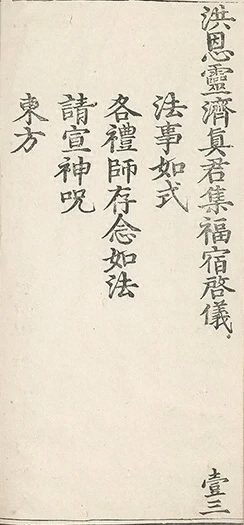 洪恩靈濟真君集福宿啓儀
壹三
法事如式
各禮師存念如法
請宣神呪
東方